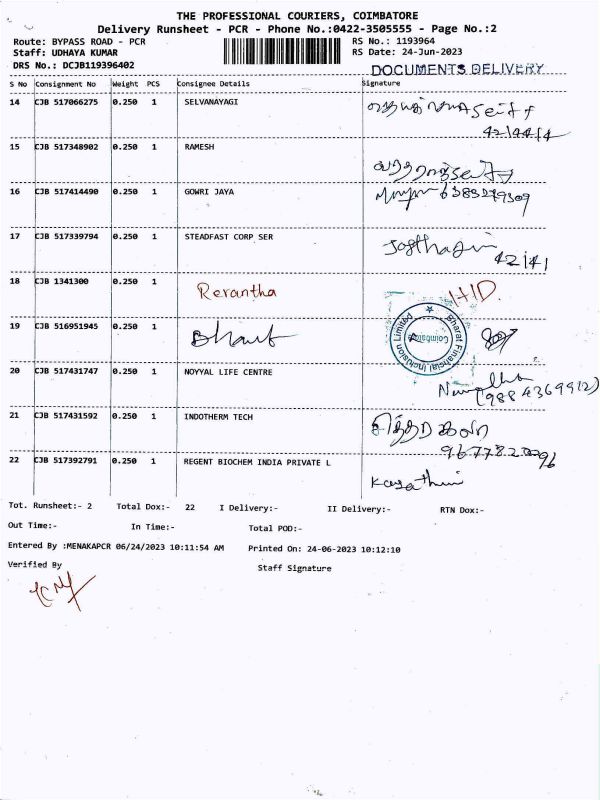 THE PROFESSIONAL COURIERS, COIMBATORE
Delivery Runsheet - PCR - Phone No.:0422-3505555 - Page No.:2
Route: BYPASS ROAD - PCR RS No.: 1193964
Staff: UDHAYA KUMAR RS Date: 24-Jun-2023
DRS No.: DCJB119396402 DOCUMENTS DELIVERY
S No Consignment No Weight PCS Consignee Details Signature
14 CJB 517066275 0.250 1 SELVANAYAGI
15 CJB 517348902 0.250 1 RAMESH
16 CJB 517414490 0.250 1 GOWRI JAYA 6383279309
17 CJB 517339794 0.250 1 STEADFAST CORP SER
42141
18 CJB 1341300 0.250 1 Rerantha HID.
19 CJB 516951945 0.250 1 Bharat
Bharat Financial Inclusion Limited
Coimbatore
20 CJB 517431747 0.250 1 NOYYAL LIFE CENTRE
(9884369912)
21 CJB 517431592 0.250 1 INDOTHERM TECH
22 CJB 517392791 0.250 1 REGENT BIOCHEM INDIA PRIVATE L
Tot. Runsheet:- 2 Total Dox:- 22 I Delivery:- II Delivery:- RTN Dox:-
Out Time:- In Time:- Total POD:-
Entered By :MENAKAPCR 06/24/2023 10:11:54 AM Printed On: 24-06-2023 10:12:10
Verified By Staff Signature